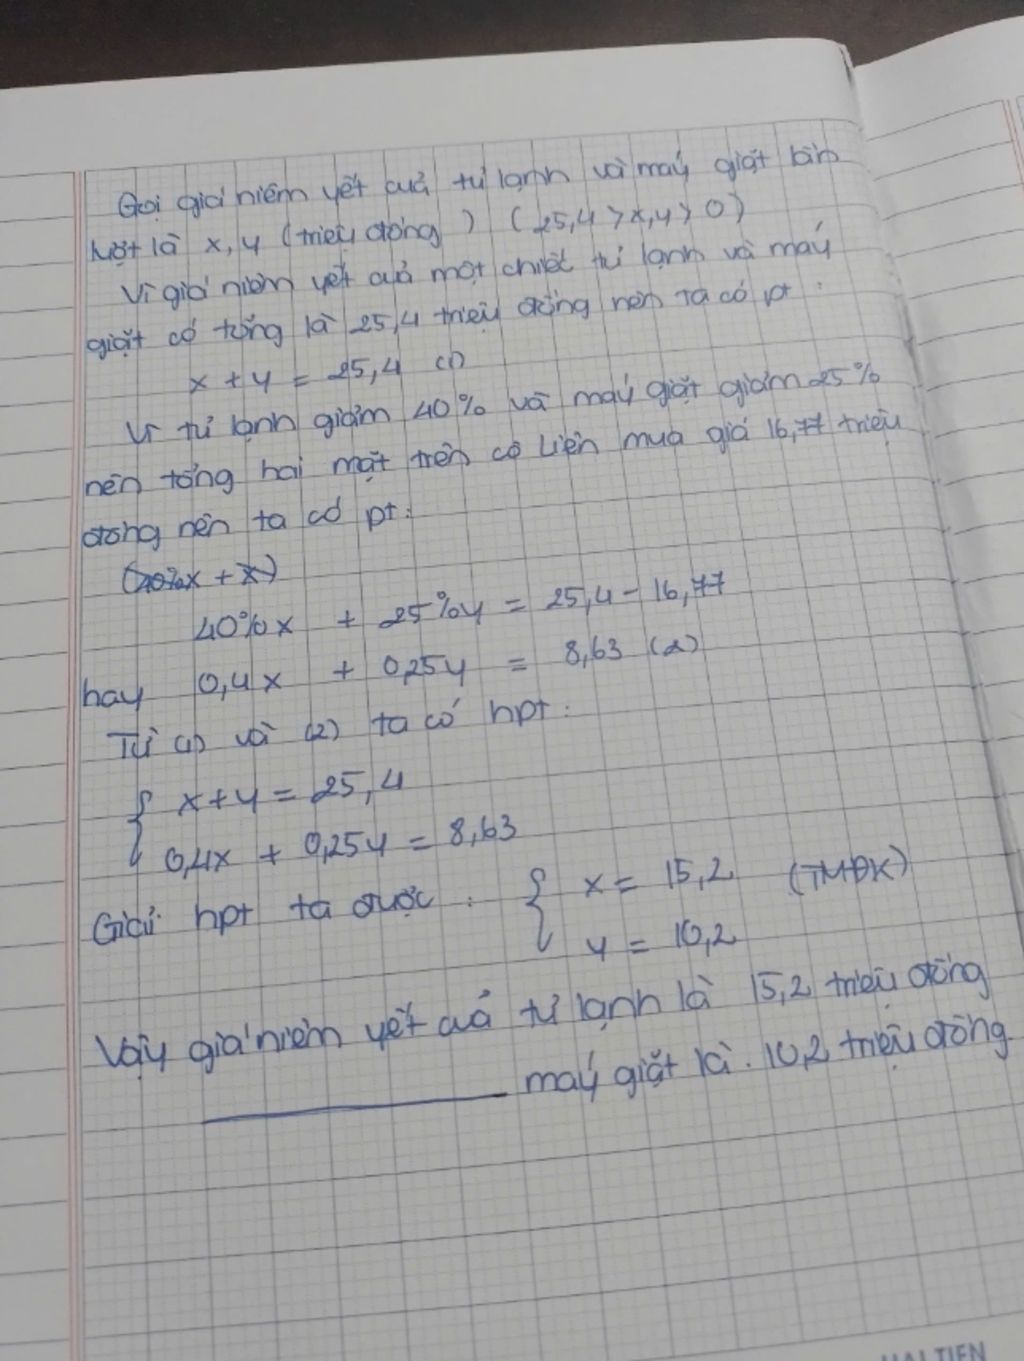 Gọi giá niêm yết của tủ lạnh và máy giặt lần
lượt là x, y (triệu đồng) (25,4 > x,y > 0)
Vì giá niêm yết của một chiếc tủ lạnh và máy
giặt có tổng là 25,4 triệu đồng nên ta có pt:
x + y = 25,4 (1)
Vì tủ lạnh giảm 40% và máy giặt giảm 25%
nên tổng hai mặt trên cô Liên mua giá 16,77 triệu
đồng nên ta có pt:
40%x + 25%y = 25,4 - 16,77
hay 0,4x + 0,25y = 8,63 (2)
Từ (1) và (2) ta có hpt:
x + y = 25,4
0,4x + 0,25y = 8,63
Giải hpt ta được: { x = 15,2 (TMĐK)
y = 10,2
Vậy giá niêm yết của tủ lạnh là 15,2 triệu đồng
máy giặt là. 10,2 triệu đồng.
HẢI TIẾN